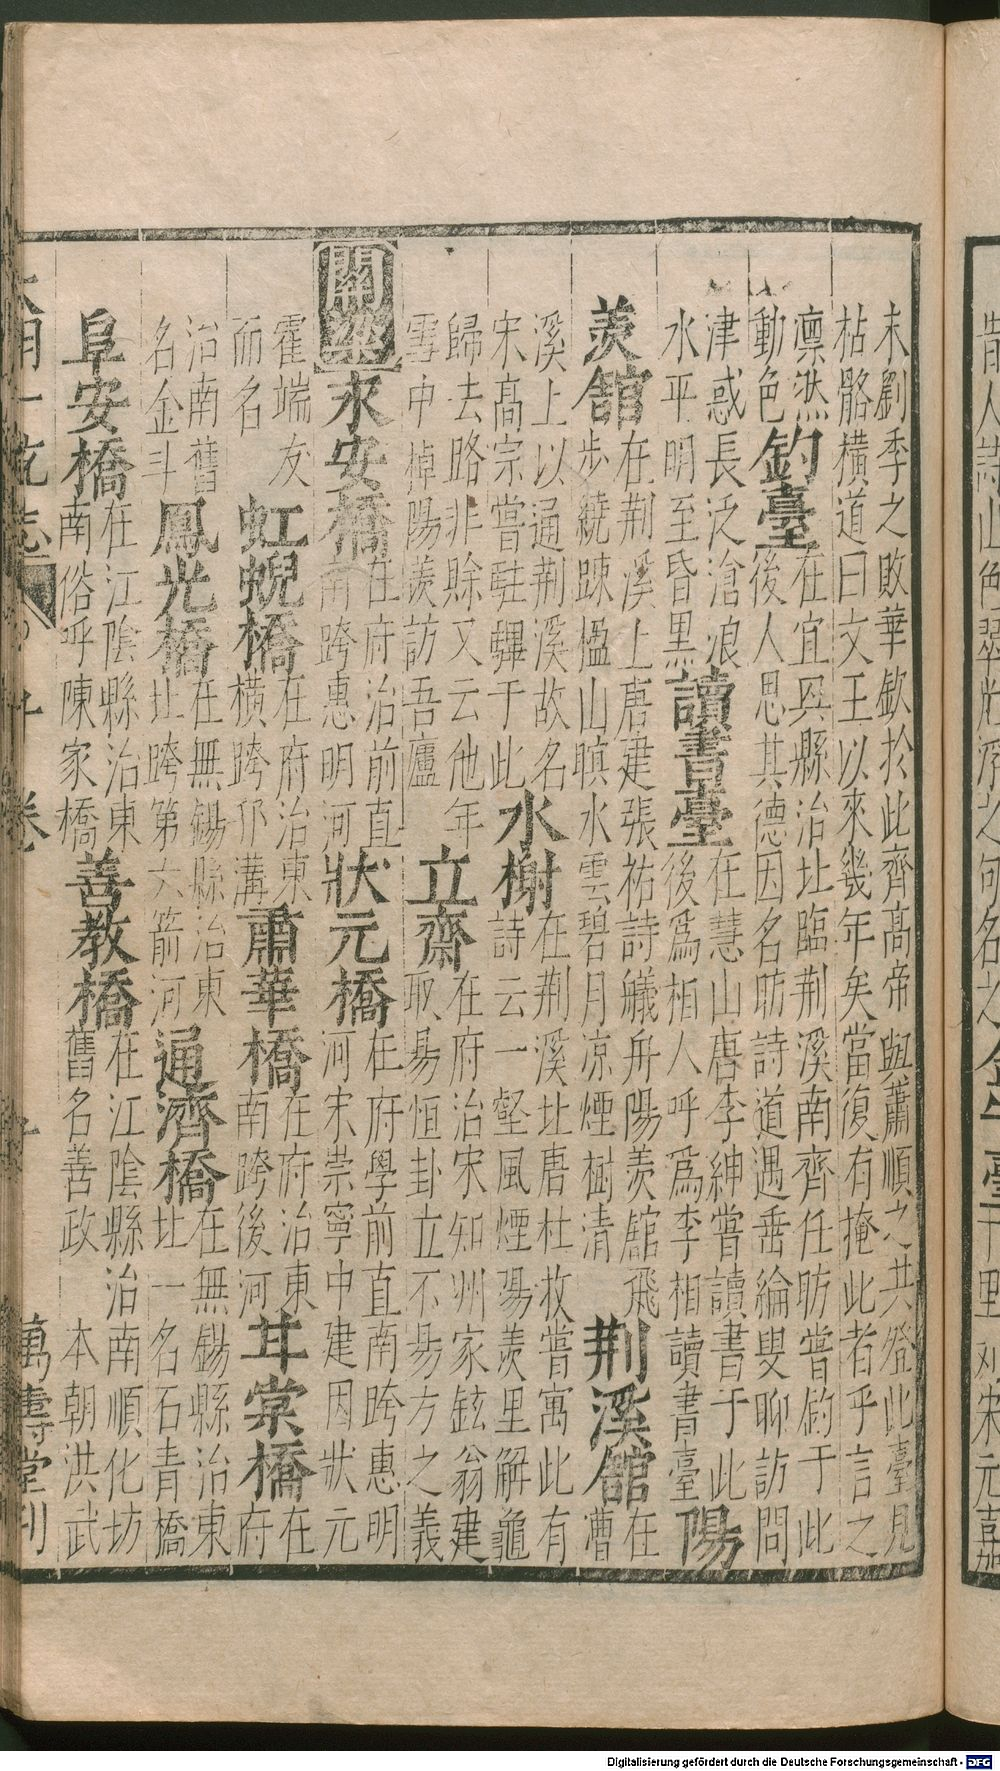 末劉季之敗華欽於此齊高帝與蕭順之共登此臺見
枯骼橫道曰文王以來幾年矣當復有掩此者乎言之
凜然釣臺在宜興縣治址臨荆溪南齊任昉嘗釣于此
動色 後人思其德因名昉詩道遇垂綸叟聊訪問
津惑長泛滄浪讀書臺在慧山唐李紳嘗讀書于此陽
水平明至昏黑 後爲相人呼爲李相讀書臺
羨舘在荆溪上唐建張祐詩艤舟陽羨舘飛荆溪舘在
步繞踈楹山暝水雲碧月凉煙樹清 漕
溪上以通荆溪故名水榭在荆溪址唐杜牧嘗寓此有
宋高宗嘗駐驆于此 詩云一壑風煙陽羨里解龜
歸去路非賒又云他年立齋在府治宋知州家鉉翁建
雪中棹陽羨訪吾廬 取易恒卦立不易方之義
關梁永安橋在府治前直狀元橋在府學前直南跨惠明
南跨惠明河 河宋崇寧中建因狀元
霍端友虹蜺橋在府治東肅華橋在府治東甘棠橋在
而名 橫跨邗溝 南跨後河 府
治南舊鳳光橋在無錫縣治東通濟橋在無錫縣治東
名金斗 址跨第六箭河 址一名石青橋
阜安橋在江陰縣治東善教橋在江陰縣治南順化坊
南俗呼陳家橋 舊名善政 本朝洪武
大明一統志 卷 萬壽堂刊
Digitalisierung gefördert durch die Deutsche Forschungsgemeinschaft - DFG